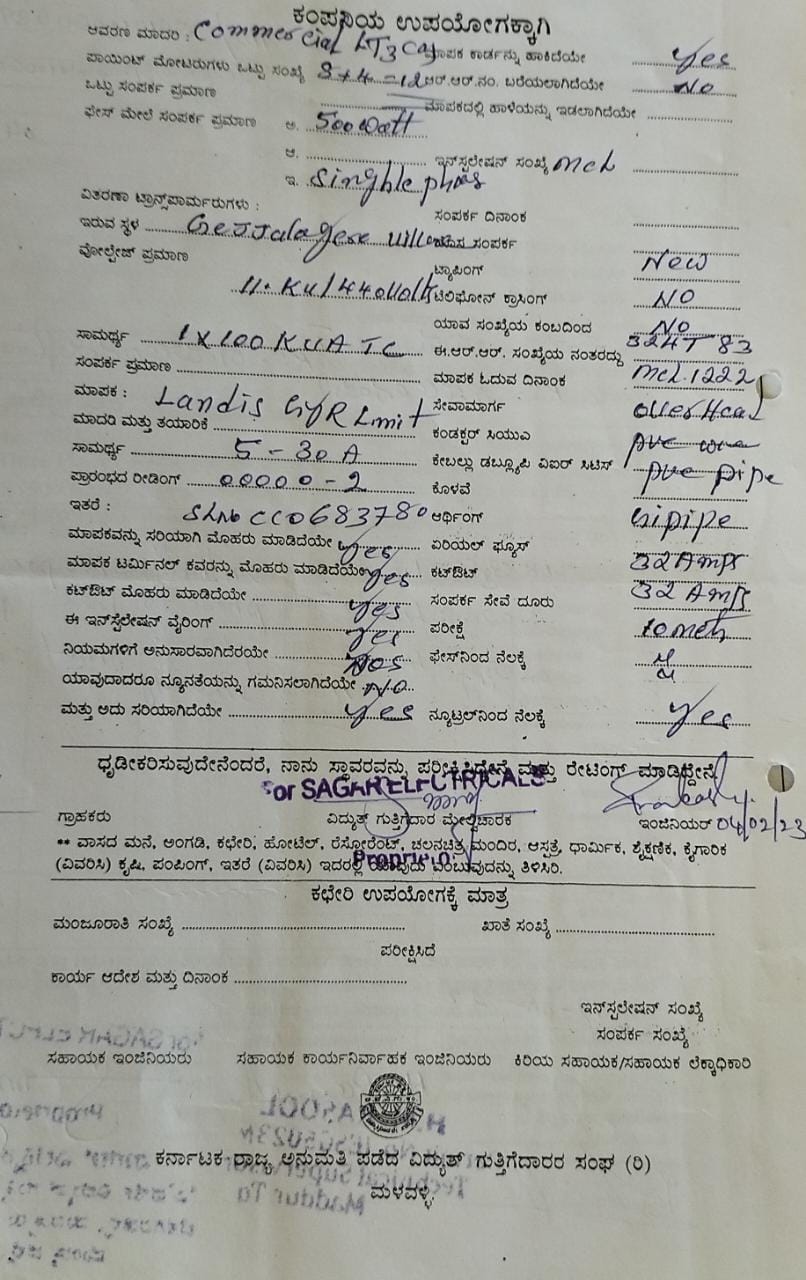 ಕಂಪನಿಯ ಉಪಯೋಗಕ್ಕಾಗಿ
ಆವರಣ ಮಾದರಿ : Commercial LT3 (a) ಮಾಪಕ ಕಾರ್ಡನ್ನು ಹಾಕಿದೆಯೇ Yes
ಪಾಯಿಂಟ್ ಮೋಟರುಗಳು ಒಟ್ಟು ಸಂಖ್ಯೆ 8+4 = 12 ಆರ್.ಆರ್.ನಂ. ಬರೆಯಲಾಗಿದೆಯೇ No
ಒಟ್ಟು ಸಂಪರ್ಕ ಪ್ರಮಾಣ ಮಾಪಕದಲ್ಲಿ ಹಾಳೆಯನ್ನು ಇಡಲಾಗಿದೆಯೇ
ಫೇಸ್ ಮೇಲೆ ಸಂಪರ್ಕ ಪ್ರಮಾಣ ಅ. 500 Watt
ಆ. ಇನ್‌ಸ್ಟಲೇಷನ್ ಸಂಖ್ಯೆ MCL
ಇ. Singhle phas
ವಿತರಣಾ ಟ್ರಾನ್ಸ್‌ಪಾರ್ಮರುಗಳು : ಸಂಪರ್ಕ ದಿನಾಂಕ
ಇರುವ ಸ್ಥಳ Gejjalagere ಸಂಪರ್ಕ
ವೋಲ್ಟೇಜ್ ಪ್ರಮಾಣ ಟ್ಯಾಪಿಂಗ್ New
11. KV/440 Volt ಟೆಲಿಫೋನ್ ಕ್ರಾಸಿಂಗ್ NO
ಯಾವ ಸಂಖ್ಯೆಯ ಕಂಬದಿಂದ NO
ಸಾಮರ್ಥ್ಯ 1X100 KVA TC ಈ.ಆರ್.ಆರ್. ಸಂಖ್ಯೆಯ ನಂತರದ್ದು 324T 83
ಸಂಪರ್ಕ ಪ್ರಮಾಣ ಮಾಪಕ ಓದುವ ದಿನಾಂಕ MCL.1222
ಮಾಪಕ : Landis GYR Limit ಸೇವಾಮಾರ್ಗ Over Head
ಮಾದರಿ ಮತ್ತು ತಯಾರಿಕೆ ಕಂಡಕ್ಟರ್ ಸಿಯುವಿ
ಸಾಮರ್ಥ್ಯ 5 - 30 A ಕೇಬಲ್ಲು ಡಬ್ಲ್ಯೂಪಿ ವಿಐರ್ ಸಿಟಿಸ್ PVC pipe
ಪ್ರಾರಂಭದ ರೀಡಿಂಗ್ 00000 - 2 ಕೊಳವೆ
ಇತರೆ : SLNo CC0683780 ಆರ್ಥಿಂಗ್ Gipipe
ಮಾಪಕವನ್ನು ಸರಿಯಾಗಿ ಮೊಹರು ಮಾಡಿದೆಯೇ Yes ಏರಿಯಲ್ ಫ್ಯೂಸ್
ಮಾಪಕ ಟರ್ಮಿನಲ್ ಕವರನ್ನು ಮೊಹರು ಮಾಡಿದೆಯೇ Yes ಕಟ್‌ಔಟ್ 32 Amps
ಕಟ್‌ಔಟ್ ಮೊಹರು ಮಾಡಿದೆಯೇ Yes ಸಂಪರ್ಕ ಸೇವೆ ದೂರು 32 Amps
ಈ ಇನ್‌ಸ್ಟಲೇಷನ್ ವೈರಿಂಗ್ Yes ಪರೀಕ್ಷೆ 10 meth
ನಿಯಮಗಳಿಗೆ ಅನುಸಾರವಾಗಿದೆರಯೇ ಫೇಸ್‌ನಿಂದ ನೆಲಕ್ಕೆ
ಯಾವುದಾದರೂ ನ್ಯೂನತೆಯನ್ನು ಗಮನಿಸಲಾಗಿದೆಯೇ NO
ಮತ್ತು ಅದು ಸರಿಯಾಗಿದೆಯೇ Yes ನ್ಯೂಟ್ರಲ್‌ನಿಂದ ನೆಲಕ್ಕೆ Yes
ಧೃಡೀಕರಿಸುವುದೇನೆಂದರೆ, ನಾನು ಸ್ಥಾವರವನ್ನು ಪರೀಕ್ಷಿಸಿದ್ದೇನೆ ಮತ್ತು ರೇಟಿಂಗ್ ಮಾಡಿದ್ದೇನೆ
For SAGAR ELECTRICALS
ಗ್ರಾಹಕರು ವಿದ್ಯುತ್ ಗುತ್ತಿಗೆದಾರ ಮೇಲ್ವಿಚಾರಕ ಇಂಜಿನಿಯರ್ 04/02/23
** ವಾಸದ ಮನೆ, ಅಂಗಡಿ, ಕಛೇರಿ, ಹೋಟೆಲ್, ರೆಸ್ಟೋರೆಂಟ್, ಚಲನಚಿತ್ರ ಮಂದಿರ, ಆಸ್ಪತ್ರೆ, ಧಾರ್ಮಿಕ, ಶೈಕ್ಷಣಿಕ, ಕೈಗಾರಿಕ
(ವಿವರಿಸಿ) ಕೃಷಿ, ಪಂಪಿಂಗ್, ಇತರೆ (ವಿವರಿಸಿ) ಇದರಲ್ಲಿ ಯಾವುದು ಎಂಬುವುದನ್ನು ತಿಳಿಸಿರಿ.
Proprietor
ಕಛೇರಿ ಉಪಯೋಗಕ್ಕೆ ಮಾತ್ರ
ಮಂಜೂರಾತಿ ಸಂಖ್ಯೆ ಖಾತೆ ಸಂಖ್ಯೆ
ಪರೀಕ್ಷಿಸಿದೆ
ಕಾರ್ಯ ಆದೇಶ ಮತ್ತು ದಿನಾಂಕ
ಇನ್‌ಸ್ಪಲೇಷನ್ ಸಂಖ್ಯೆ
ಸಂಪರ್ಕ ಸಂಖ್ಯೆ
ಸಹಾಯಕ ಇಂಜಿನಿಯರು ಸಹಾಯಕ ಕಾರ್ಯನಿರ್ವಾಹಕ ಇಂಜಿನಿಯರು ಕಿರಿಯ ಸಹಾಯಕ/ಸಹಾಯಕ ಲೆಕ್ಕಾಧಿಕಾರಿ
ಕರ್ನಾಟಕ ರಾಜ್ಯ ಅನುಮತಿ ಪಡೆದ ವಿದ್ಯುತ್ ಗುತ್ತಿಗೆದಾರರ ಸಂಘ (ರಿ)
ಮಳವಳ್ಳಿ